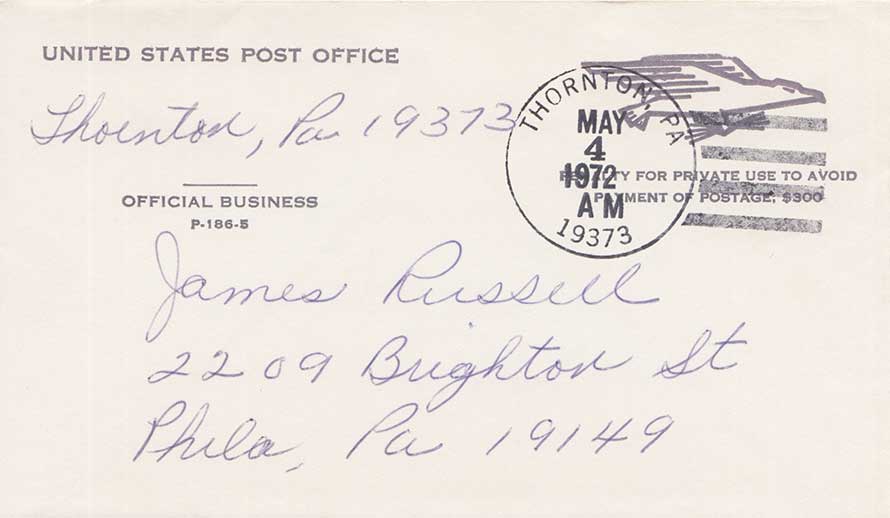 UNITED STATES POST OFFICE
Thornton, Pa 19373
OFFICIAL BUSINESS
P-186-5
THORNTON, PA
MAY
4
1972
AM
19373
PENALTY FOR PRIVATE USE TO AVOID
PAYMENT OF POSTAGE, $300
James Russell
2209 Brighton St
Phila, Pa 19149